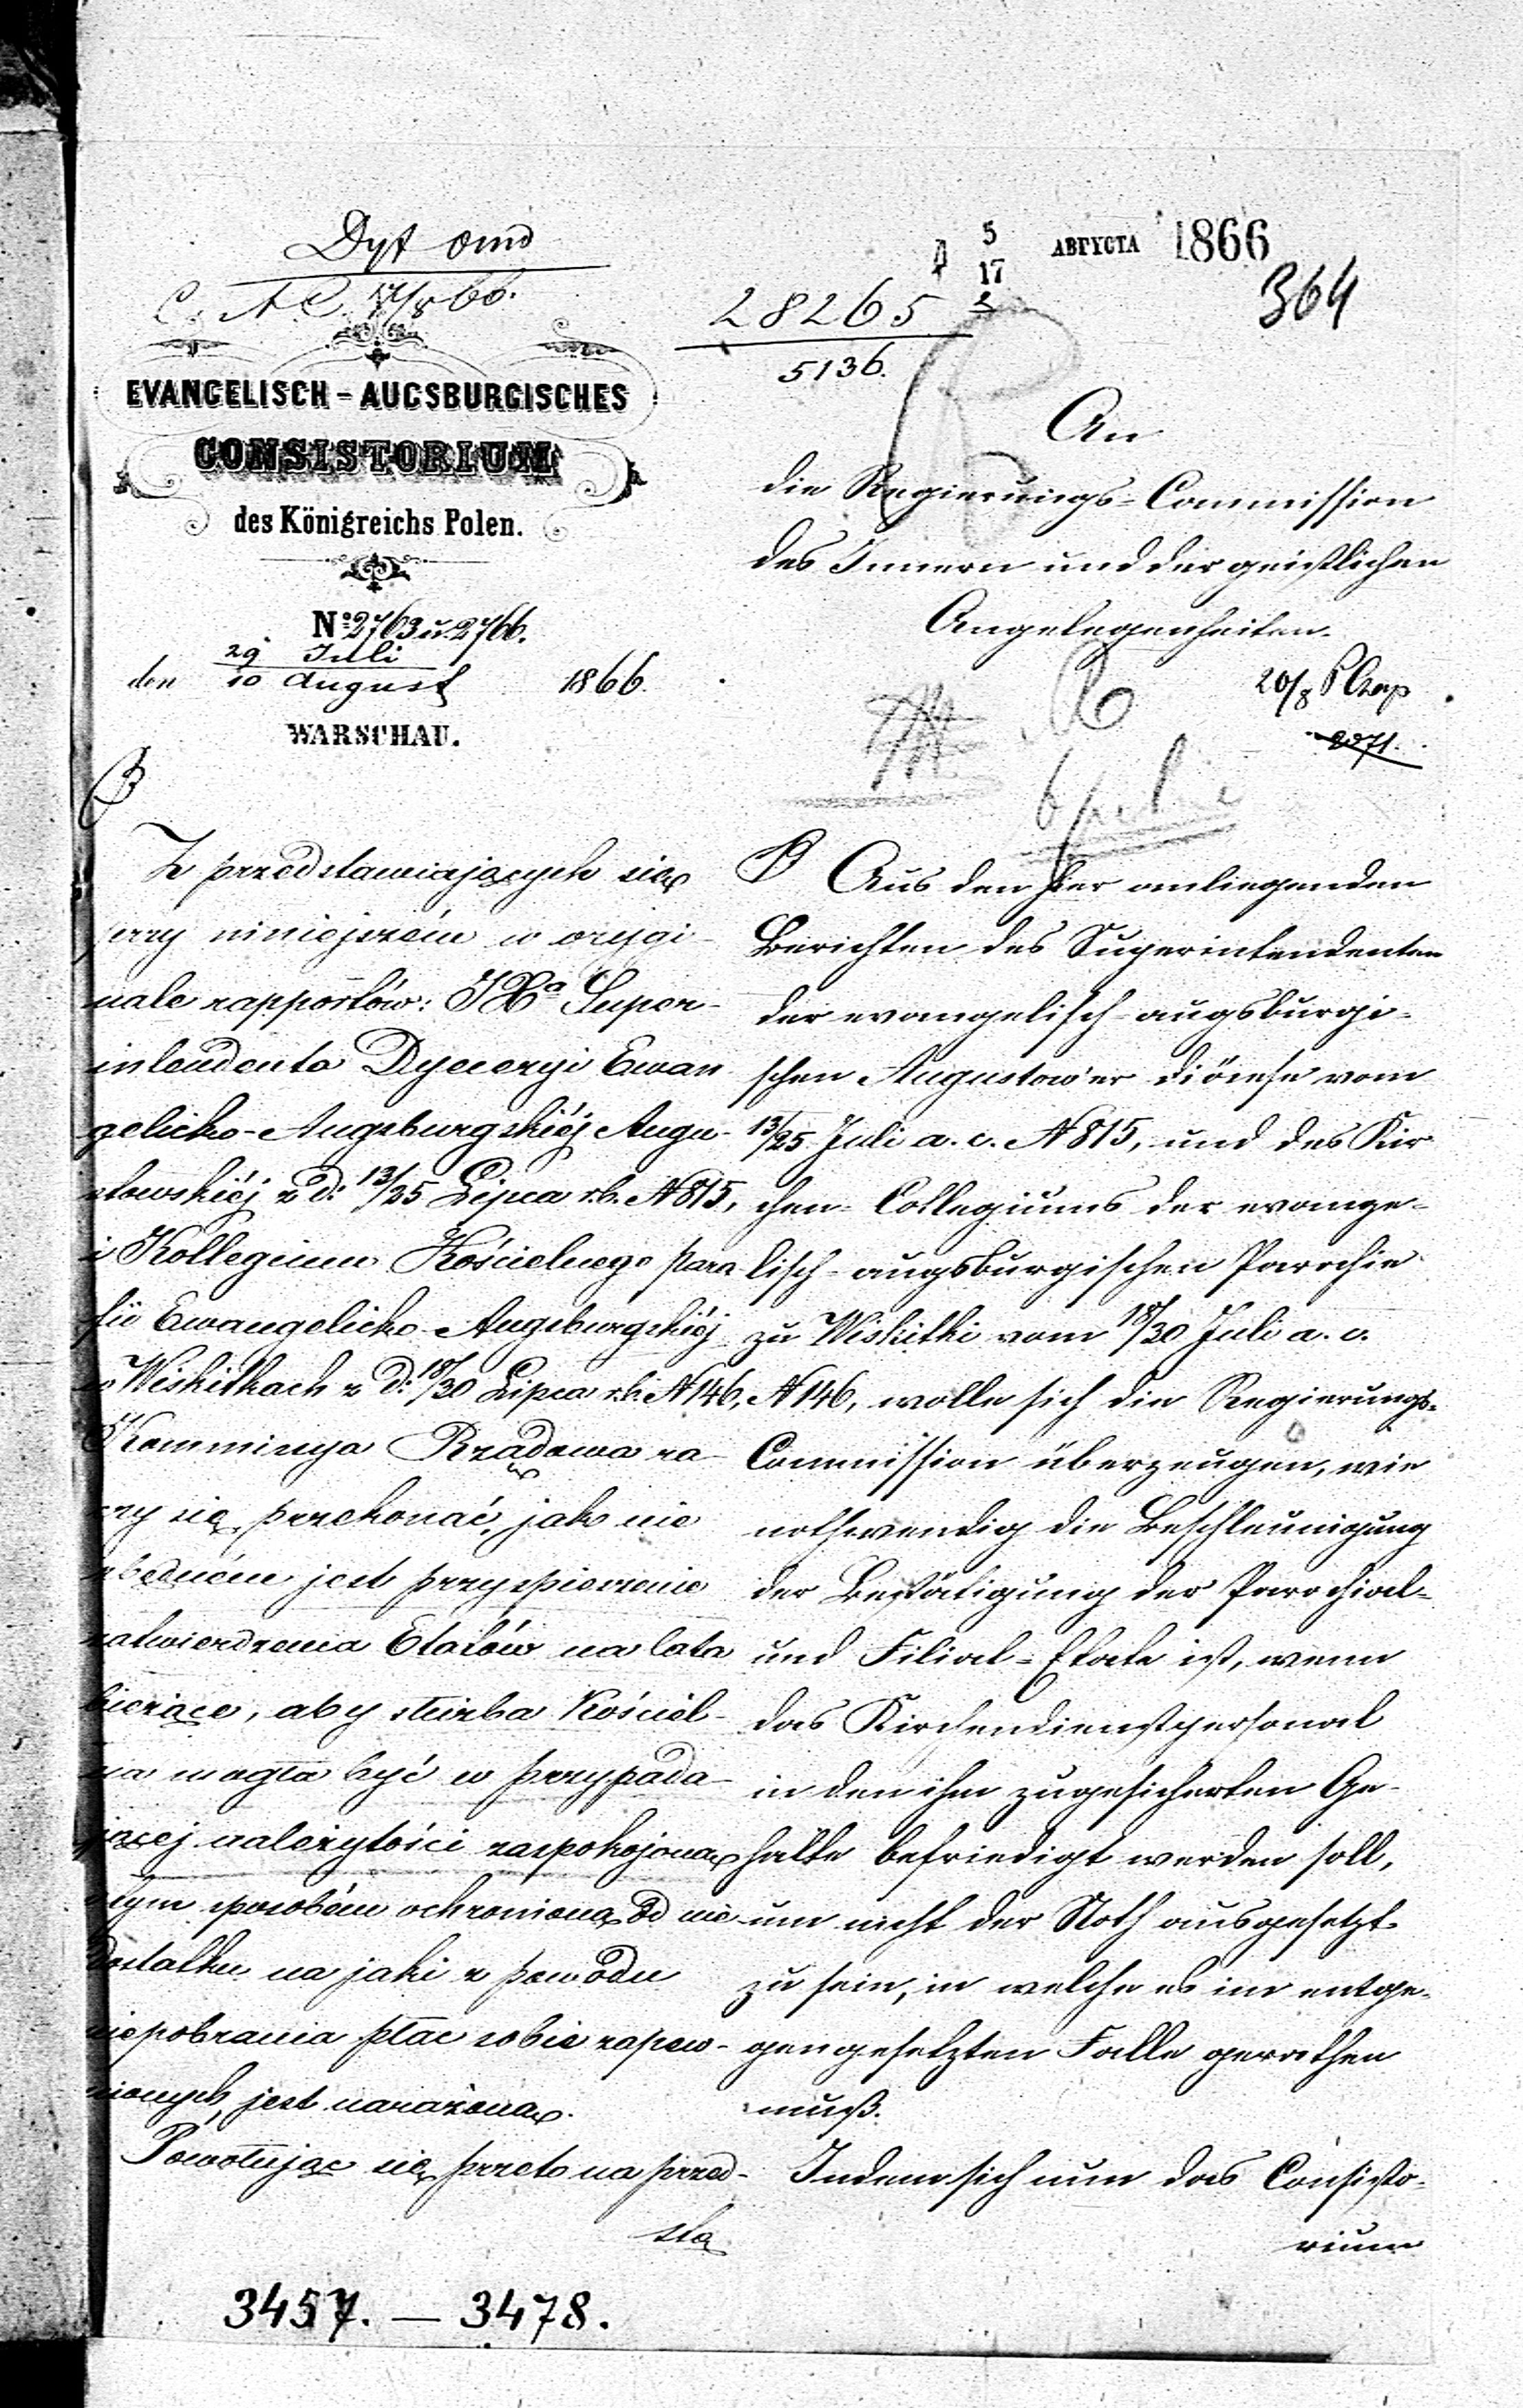 Dyt
5
17 АВГУСТА 1866
364
28265
5136.
EVANGELISCH-AUGSBURGISCHES
CONSISTORIUM
des Königreichs Polen.
No 2763 u. 2766.
den 29 Juli
10 August 1866.
WARSCHAU.
An
die Regierungs-Commission
des Innern und der geistlichen
Angelegenheiten.
20/8
2071.
Z przedstawiających się
przy niniejszém w orygi-
nale rapportów: JXa Super-
intendenta Dyecezyi Ewan
gelicko-Augsburgskiéj Augu-
stowskiéj z d: 13/25 Lipca r.b. N 815,
i Kollegium Kościelnego para
fii Ewangelicko-Augsburgskiéj
w Wiskitkach z d: 18/30 Lipca r.b. N 146,
Kommissya Rządowa ra
czy się przekonać, jak nie
zbędném jest przyspieszenie
zatwierdzenia Etatów na lata
bieżące, aby służba Kościel-
na mogła być w przypada-
jącej należytości zaspokojoną
i tym sposobém ochronioną od nie-
dostatku na jaki z powodu
niepobrania płac sobie zapew-
nionych, jest narażoną.
Powołując się przeto na przed-
sta
Aus den hier anliegenden
Berichten des Superintendenten
der evangelisch-augsburgi-
schen Augustow'er Diöcese vom
13/25 Juli a. c. N 815, und des Kir-
chen-Collegiums der evange-
lisch-augsburgischen Parochie
zu Wiskitki vom 18/30 Juli a. c.
N 146, wolle sich die Regierungs-
Commission überzeugen, wie
nothwendig die Beschleunigung
der Bestätigung der Parochial-
und Filial-Etate ist, wenn
das Kirchendienstpersonal
in den ihm zugesicherten Ge-
halte befriedigt werden soll,
um nicht der Noth ausgesetzt
zu sein, in welche es im entge-
gengesetzten Falle gerathen
muß.
Indem sich nun das Consisto-
rium
3457. — 3478.